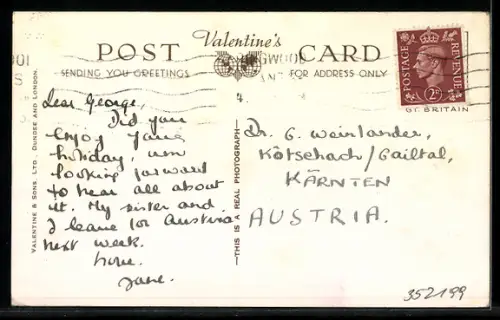 POST Valentine's CARD
SENDING YOU GREETINGS
FOR ADDRESS ONLY
POSTAGE REVENUE
2D
GT. BRITAIN
VALENTINE & SONS, LTD., DUNDEE AND LONDON.
THIS IS A REAL PHOTOGRAPH
4.
Dear George,
Did you
enjoy your
holiday, am
looking forward
to hear all about
it. My sister and
I leave for Austria
next week.
love.
Jane.
Dr. G. Weinlander,
Kötschach/Gailtal,
KÄRNTEN
AUSTRIA.
352199